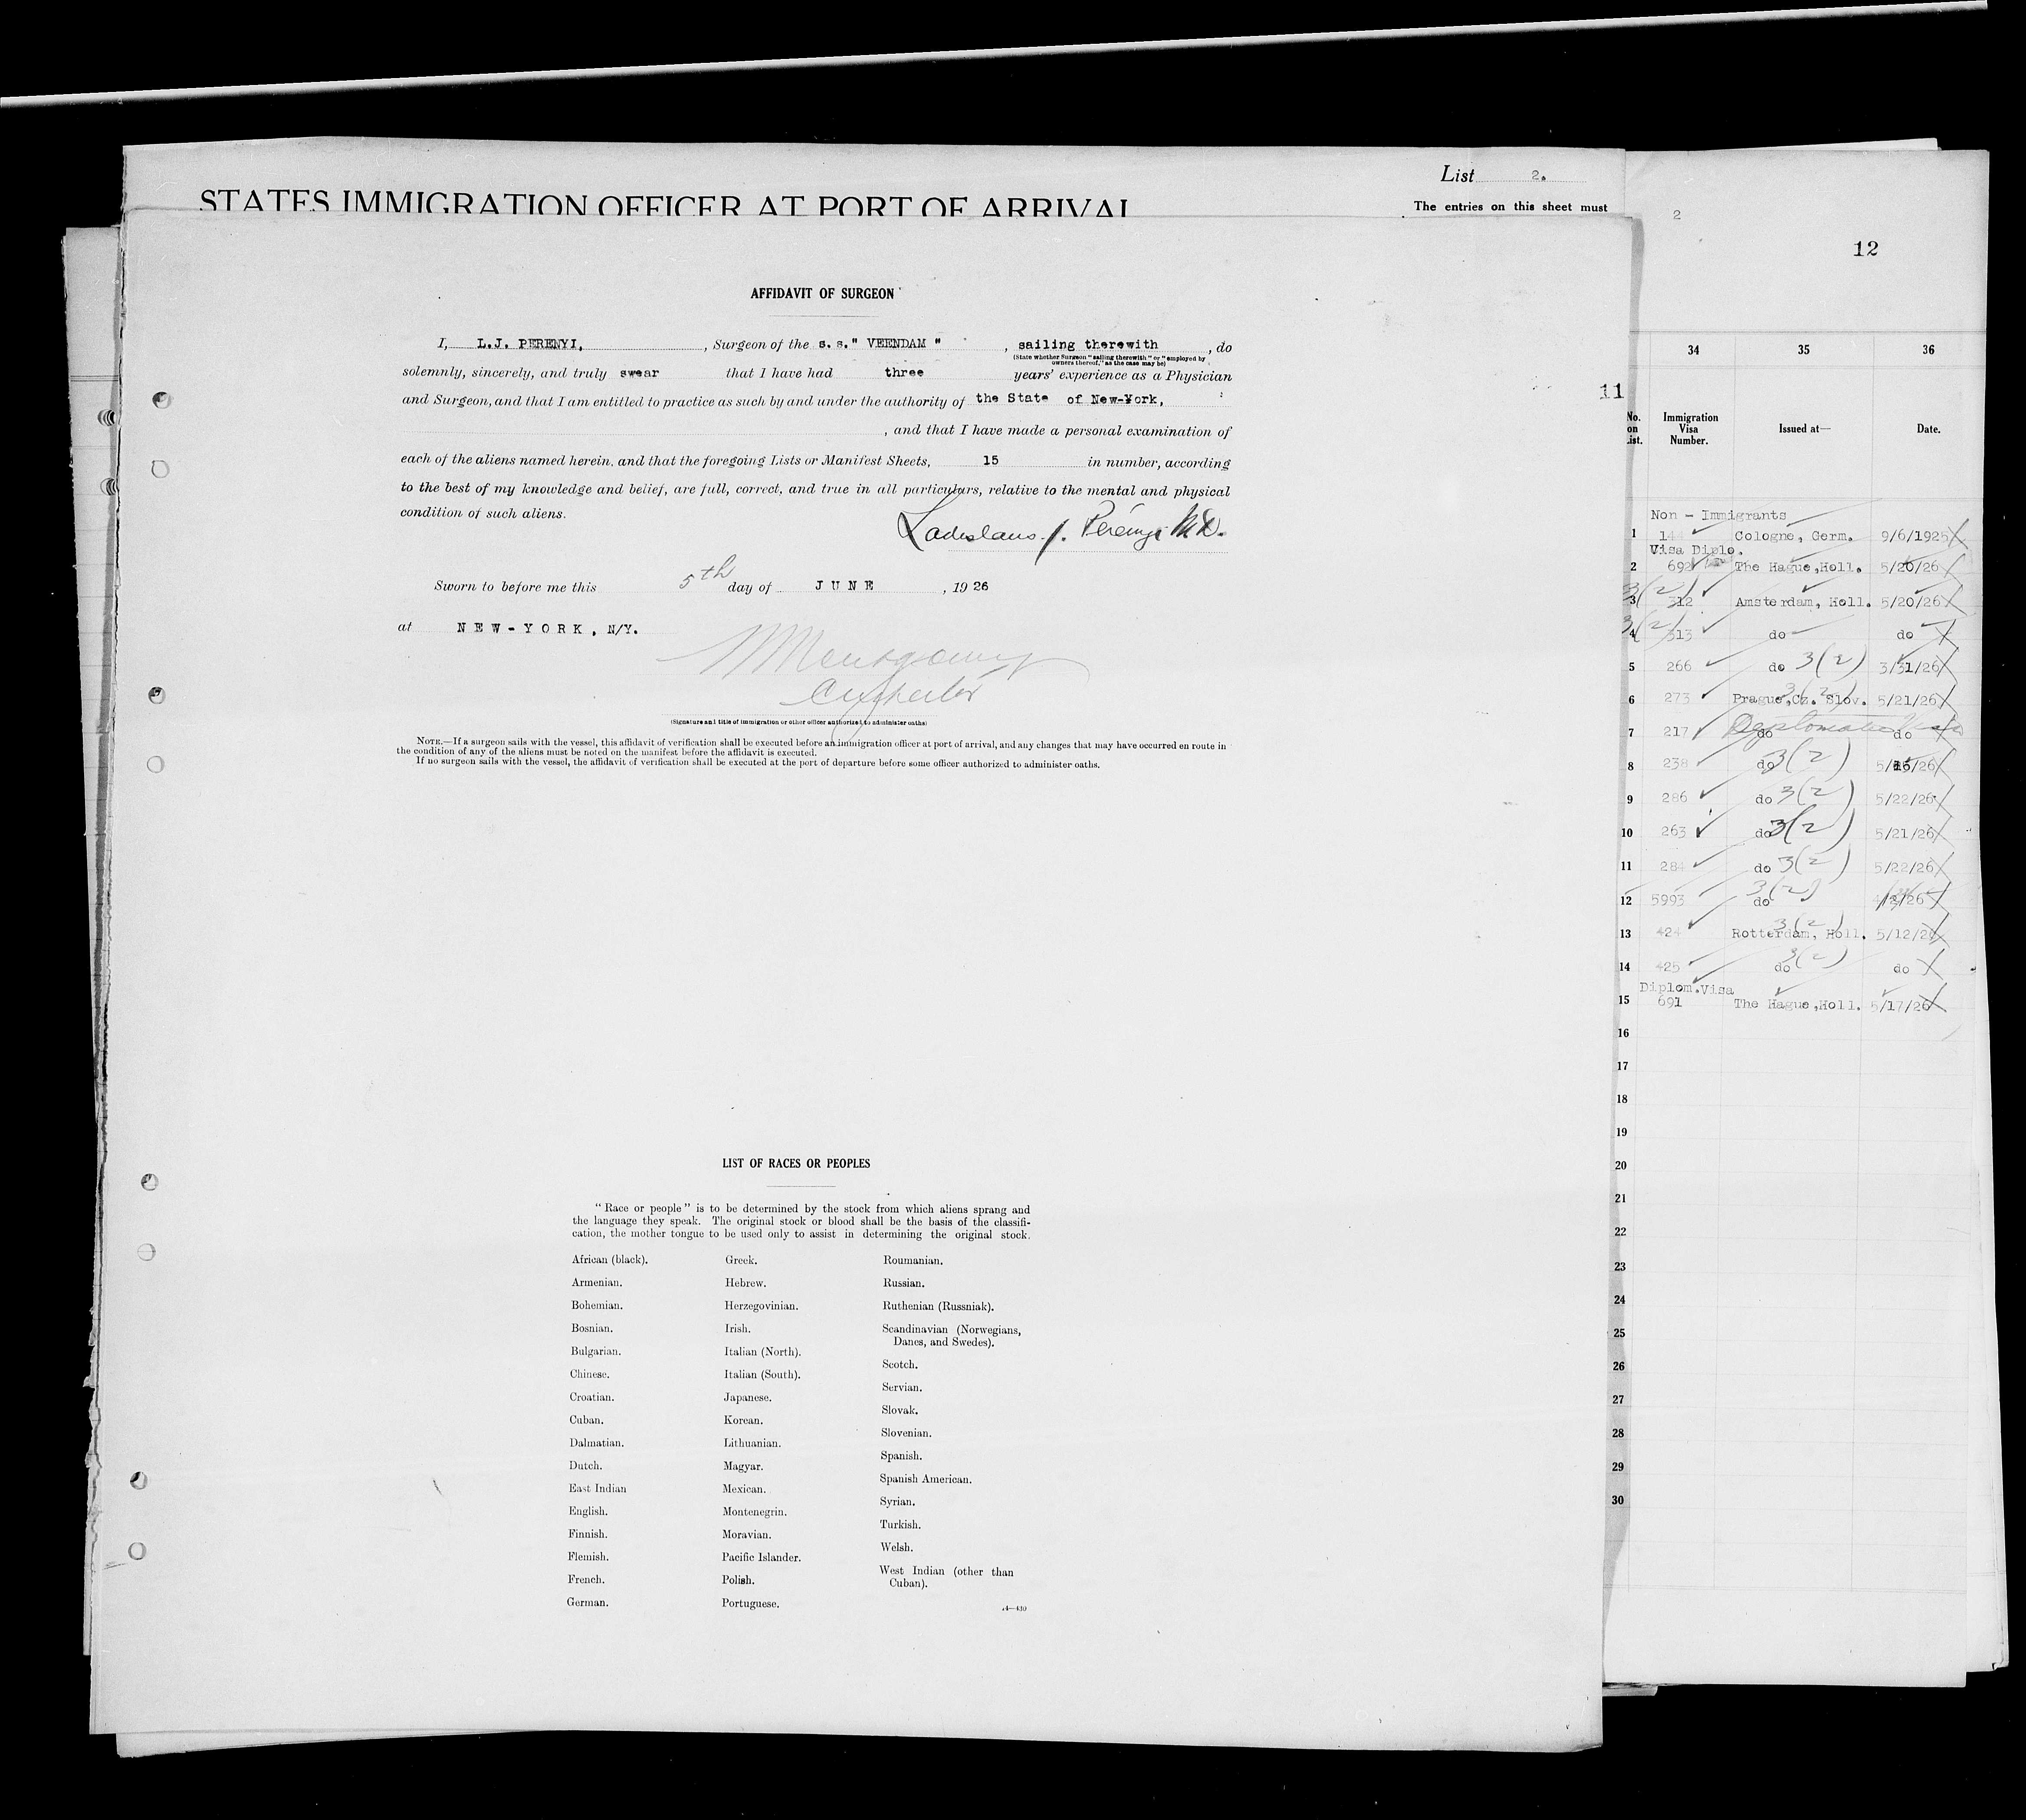 List 2.
STATES IMMIGRATION OFFICER AT PORT OF ARRIVAL
The entries on this sheet must
AFFIDAVIT OF SURGEON
I, L.J. PERENYI, , Surgeon of the s.s." VEENDAM " , sailing therewith , do
(State whether Surgeon "sailing therewith" or "employed by
owners thereof," as the case may be)
solemnly, sincerely, and truly swear that I have had three years' experience as a Physician
and Surgeon, and that I am entitled to practice as such by and under the authority of the State of New-York,
, and that I have made a personal examination of
each of the aliens named herein, and that the foregoing Lists or Manifest Sheets, 15 in number, according
to the best of my knowledge and belief, are full, correct, and true in all particulars, relative to the mental and physical
condition of such aliens.
Ladislaus J. Perényi M.D.
Sworn to before me this 5th day of JUNE , 1926
at NEW-YORK, N/Y.
Montgomery
(Signature and title of immigration or other officer authorized to administer oaths)
NOTE.—If a surgeon sails with the vessel, this affidavit of verification shall be executed before an immigration officer at port of arrival, and any changes that may have occurred en route in
the condition of any of the aliens must be noted on the manifest before the affidavit is executed.
If no surgeon sails with the vessel, the affidavit of verification shall be executed at the port of departure before some officer authorized to administer oaths.
LIST OF RACES OR PEOPLES
"Race or people" is to be determined by the stock from which aliens sprang and
the language they speak. The original stock or blood shall be the basis of the classifi-
cation, the mother tongue to be used only to assist in determining the original stock.
African (black).
Armenian.
Bohemian.
Bosnian.
Bulgarian.
Chinese.
Croatian.
Cuban.
Dalmatian.
Dutch.
East Indian
English.
Finnish.
Flemish.
French.
German.
Greek.
Hebrew.
Herzegovinian.
Irish.
Italian (North).
Italian (South).
Japanese.
Korean.
Lithuanian.
Magyar.
Mexican.
Montenegrin.
Moravian.
Pacific Islander.
Polish.
Portuguese.
Roumanian.
Russian.
Ruthenian (Russniak).
Scandinavian (Norwegians,
Danes, and Swedes).
Scotch.
Servian.
Slovak.
Slovenian.
Spanish.
Spanish American.
Syrian.
Turkish.
Welsh.
West Indian (other than
Cuban).
14—430
2
12
11
34 35 36
No.
on
List.
Immigration
Visa
Number.
Issued at—
Date.
Non - Immigrants
1 144 Cologne, Germ. 9/6/1925
Visa Diplo.
2 692 The Hague,Holl. 5/20/26
3(2)
3 312 Amsterdam, Holl. 5/20/26
3(2)
4 313 do do
5 266 do 3(2) 3/31/26
6 273 Prague,Cz. Slov. 3(2) 5/21/26
Diplomatic Visa
7 217 do do
8 238 do 3(2) 5/26
9 286 do 3(2) 5/22/26
10 263 do 3(2) 5/21/26
11 284 do 3(2) 5/22/26
12 5993 do 3(2)
13 424 Rotterdam, Holl. 3(2) 5/12/26
14 425 do 3(2) do
Diplom.Visa
15 691 The Hague,Holl. 5/17/26
16
17
18
19
20
21
22
23
24
25
26
27
28
29
30